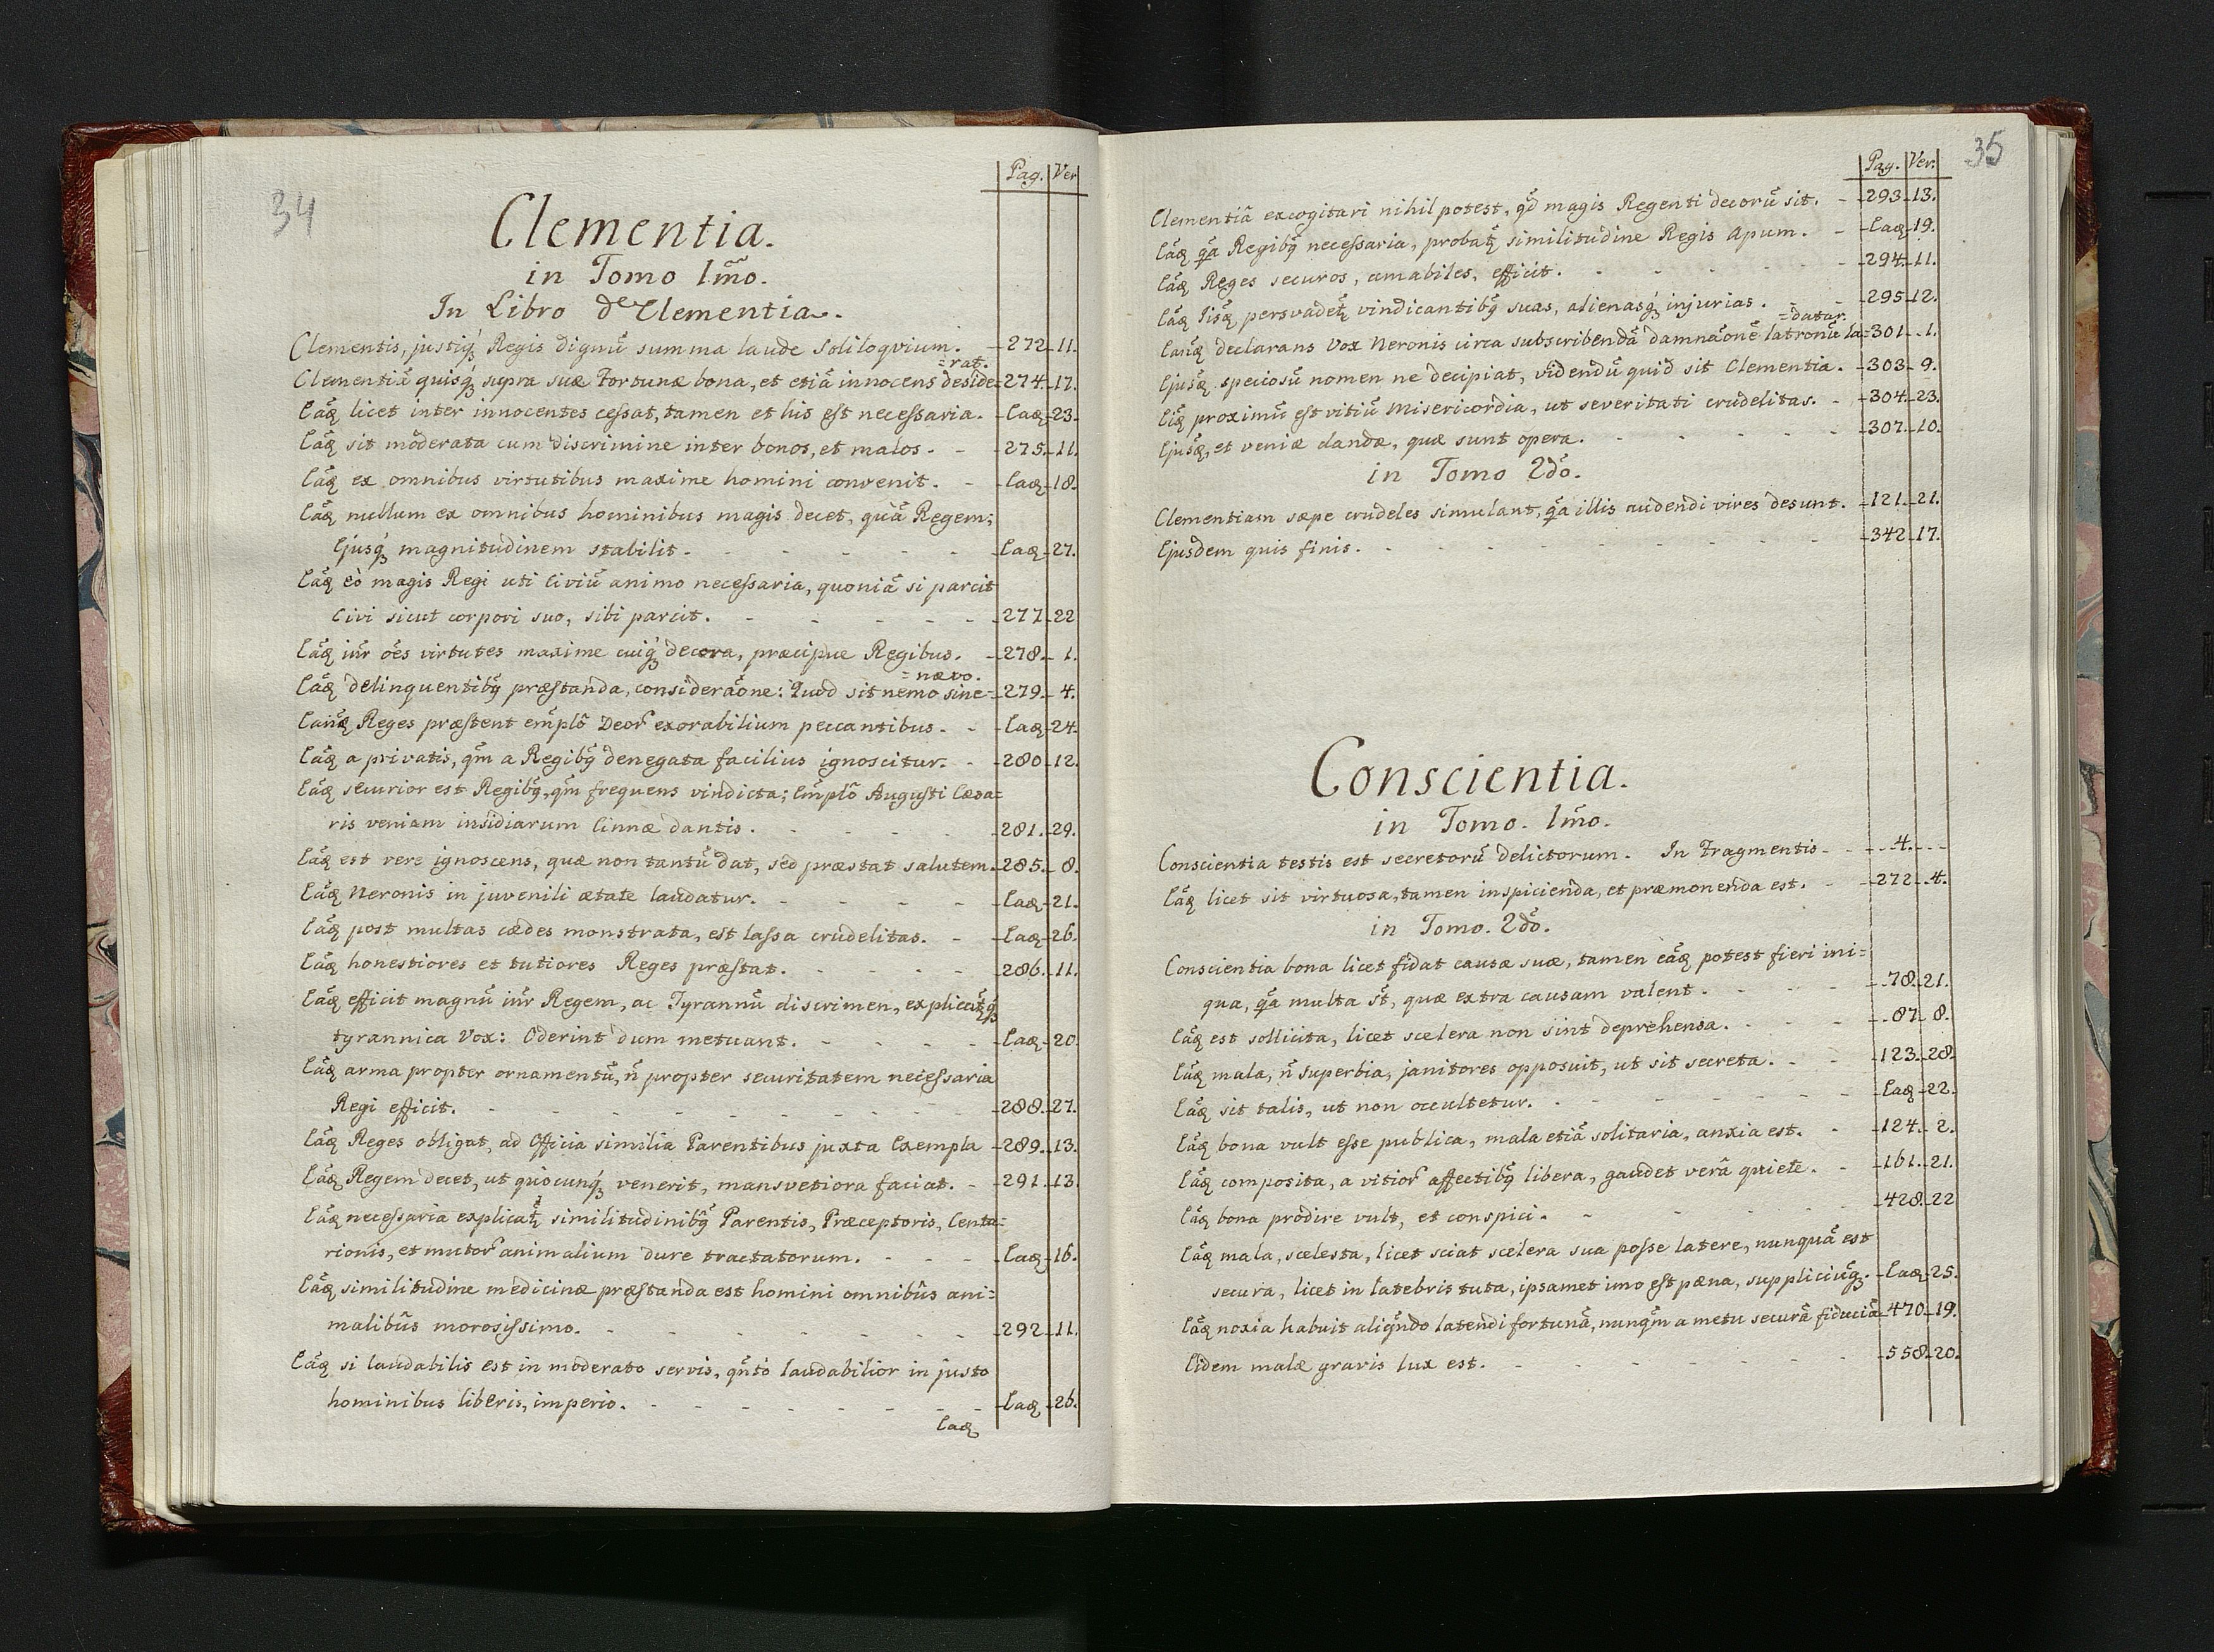 34
Pag. Ver
Clementia.
in Tomo 1mõ.
In Libro de Clementia.
Clementis, justiq́ꝫ Regis dignũ summa laude soliloqvium. - 272. 11.
=rat.
Clementiã quisq́ꝫ supra suæ Fortunæ bona, et etiã innocens deside= 274. 17.
Eãq licet inter innocentes cessat, tamen et his est necessaria. - Eaq 23.
Eãq sit moderata cum discrimine inter bonos, et malos. - - 275. 11.
Eãq ex omnibus virtutibus maxime homini convenit. - Eaq 18.
Eãq nullum ex omnibus hominibus magis decet, quã Regem;
Ejusq́ꝫ magnitudinem stabilit. - - - - - Eaq 27.
Eãq eò magis Regi uti Civiũ animo necessaria, quoniã si parcit
Civi sicut corpori suo, sibi parcit. - - - - - 277. 22
Eãq iñr oẽs virtutes maxime cuiq́ꝫ decora, præcipue Regibus. - 278. 1.
=nævo.
Eãq delinquentibq̃ præstanda, consideraõne: Quod sit nemo sine= 279. 4.
Eanq̃ Reges præstent emplõ Deor̃ exorabilium peccantibus. - - Eaq 24.
Eãq a privatis, qm̃ a Regibq̃ denegata facilius ignoscitur. - 280. 12.
Eãq securior est Regibq̃, qm̃ frequens vindicta; Emplõ Augusti Cæsa=
ris veniam insidiarum Cinnæ dantis. - - - - 281. 29.
Eãq est vere ignoscens, quæ non tantũ dat, sed præstat salutem. 285. 8.
Eãq Neronis in juvenili ætate laudatur. - - - - Eaq 21.
Eãq post multas cædes monstrata, est lassa crudelitas. - Eaq 26.
Eãq honestiores et tutiores Reges præstat. - - - - 286. 11.
Eãq efficit magnũ iñr Regem, ac Tyrannũ discrimen, explicatq̃ꝫ
tyrannica Vox: Oderint dum metuant. - - - - Eaq 20
Eãq arma propter ornamentũ, ñ propter securitatem necessaria
Regi efficit. - - - - - - - - 288. 27.
Eãq Reges obligat, ad Officia similia Parentibus juxta Exempla 289. 13.
Eãq Regem decet, ut quòcunq́ꝫ venerit, mansvetiora faciat. - 291. 13.
Eãq necessaria explicatq̃ similitudinibq̃ Parentis, Præceptoris, Centu=
rionis, et mutor̃ animalium dure tractatorum. - - - Eaq 16.
Eãq similitudine medicinæ præstanda est homini omnibũs ani=
malibũs morosissimo. - - - - - - - 292. 11.
Eãq si laudabilis est in moderato servis, qñtò laudabilior in justo
hominibus liberis, imperio. - - - - - - - Eaq 26.
Eaq
35
Pag. Ver.
Clementiã excogitari nihil potest, qd̃ magis Regenti decorũ sit. - 293. 13.
Eãq qã Regibq̃ necessaria, probatq̃ similitudine Regis Apum. - Eaq 19.
Eãq Reges securos, amabiles, efficit. - - - - - 294. 11.
Eãq Iisq̃ persvadetq̃ vindicantibq̃ suas, alienasq́ꝫ injurias. - - 295. 12.
=datur.
Eanq̃ declarans Vox Neronis circa subscribendã damnaõnẽ latronũ la= 301. 1.
Ejusq̃ speciosũ nomen ne decipiat, videndũ quid sit Clementia. - 303. 9.
Eiq̃ proximũ est vitiũ Misericordia, ut severitati crudelitas. - 304. 23.
Ejusq̃, et veniæ dandæ, quæ sunt opera. - - - - - 307. 10.
in Tomo 2dõ.
Clementiam sæpe crudeles simulant, qã illis audendi vires desunt. - 121. 21.
Ejusdem quis finis. - - - - - - - - - 342. 17.
Conscientia.
in Tomo. 1mõ.
Conscientia testis est secretorũ delictorum. In Fragmentis - - 4. - -
Eãq licet sit virtuosa, tamen inspicienda, et præmonenda est. - 272. 4.
in Tomo. 2dõ.
Conscientia bona licet fidat causæ suæ, tamen eãq potest fieri ini=
qua, qã multa st̃, quæ extra causam valent. - - - - 78. 21.
Eãq est sollicita, licet scelera non sint deprehensa. - - - 87. 8.
Eãq mala, ñ superbia, janitores opposuit, ut sit secreta. - - 123. 28.
Eãq sit talis, ut non occultetur. - - - - - - - Eaq 22.
Eãq bona vult esse publica, mala etiã solitaria, anxia est. - 124. 2.
Eãq composita, a vitior̃ affectibq̃ libera, gaudet verâ quiete. - 161. 21.
Eãq bona prodire vult, et conspici. - - - - - 428. 22
Eãq mala, scelesta, licet sciat scelera sua posse latere, nunquã est
secura, licet in latebris tuta, ipsamet imo est pæna, suppliciuq̃ꝫ. Eaq 25.
Eãq noxia habuit aliqñdo latendi fortunã, nunqm̃ a metu securã fiduciã 470. 19.
Eidem malæ gravis lux est. - - - - - - 558. 20.